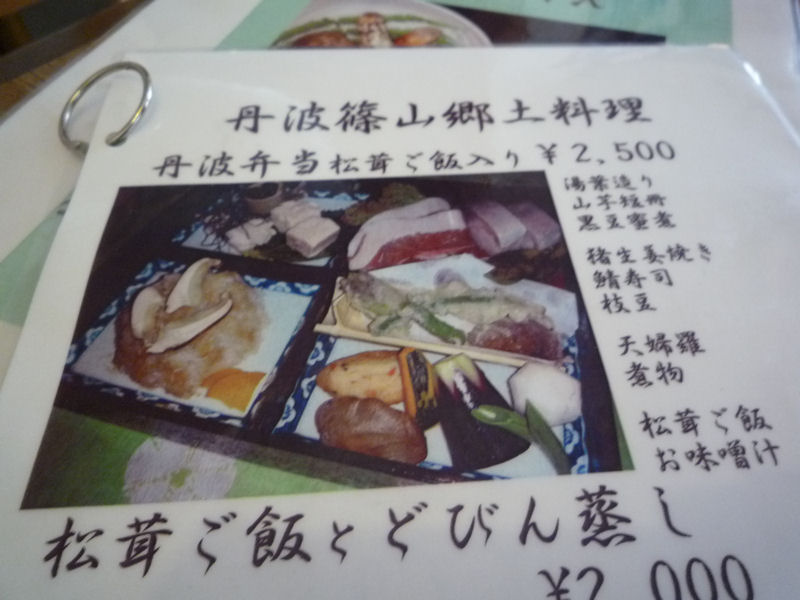 丹波篠山郷土料理
丹波弁当松茸ご飯入り ¥2,500
湯葉造り
山芋短冊
黒豆蜜煮
猪生姜焼き
鯖寿司
枝豆
天婦羅
煮物
松茸ご飯
お味噌汁
松茸ご飯とどびん蒸し
¥2,000